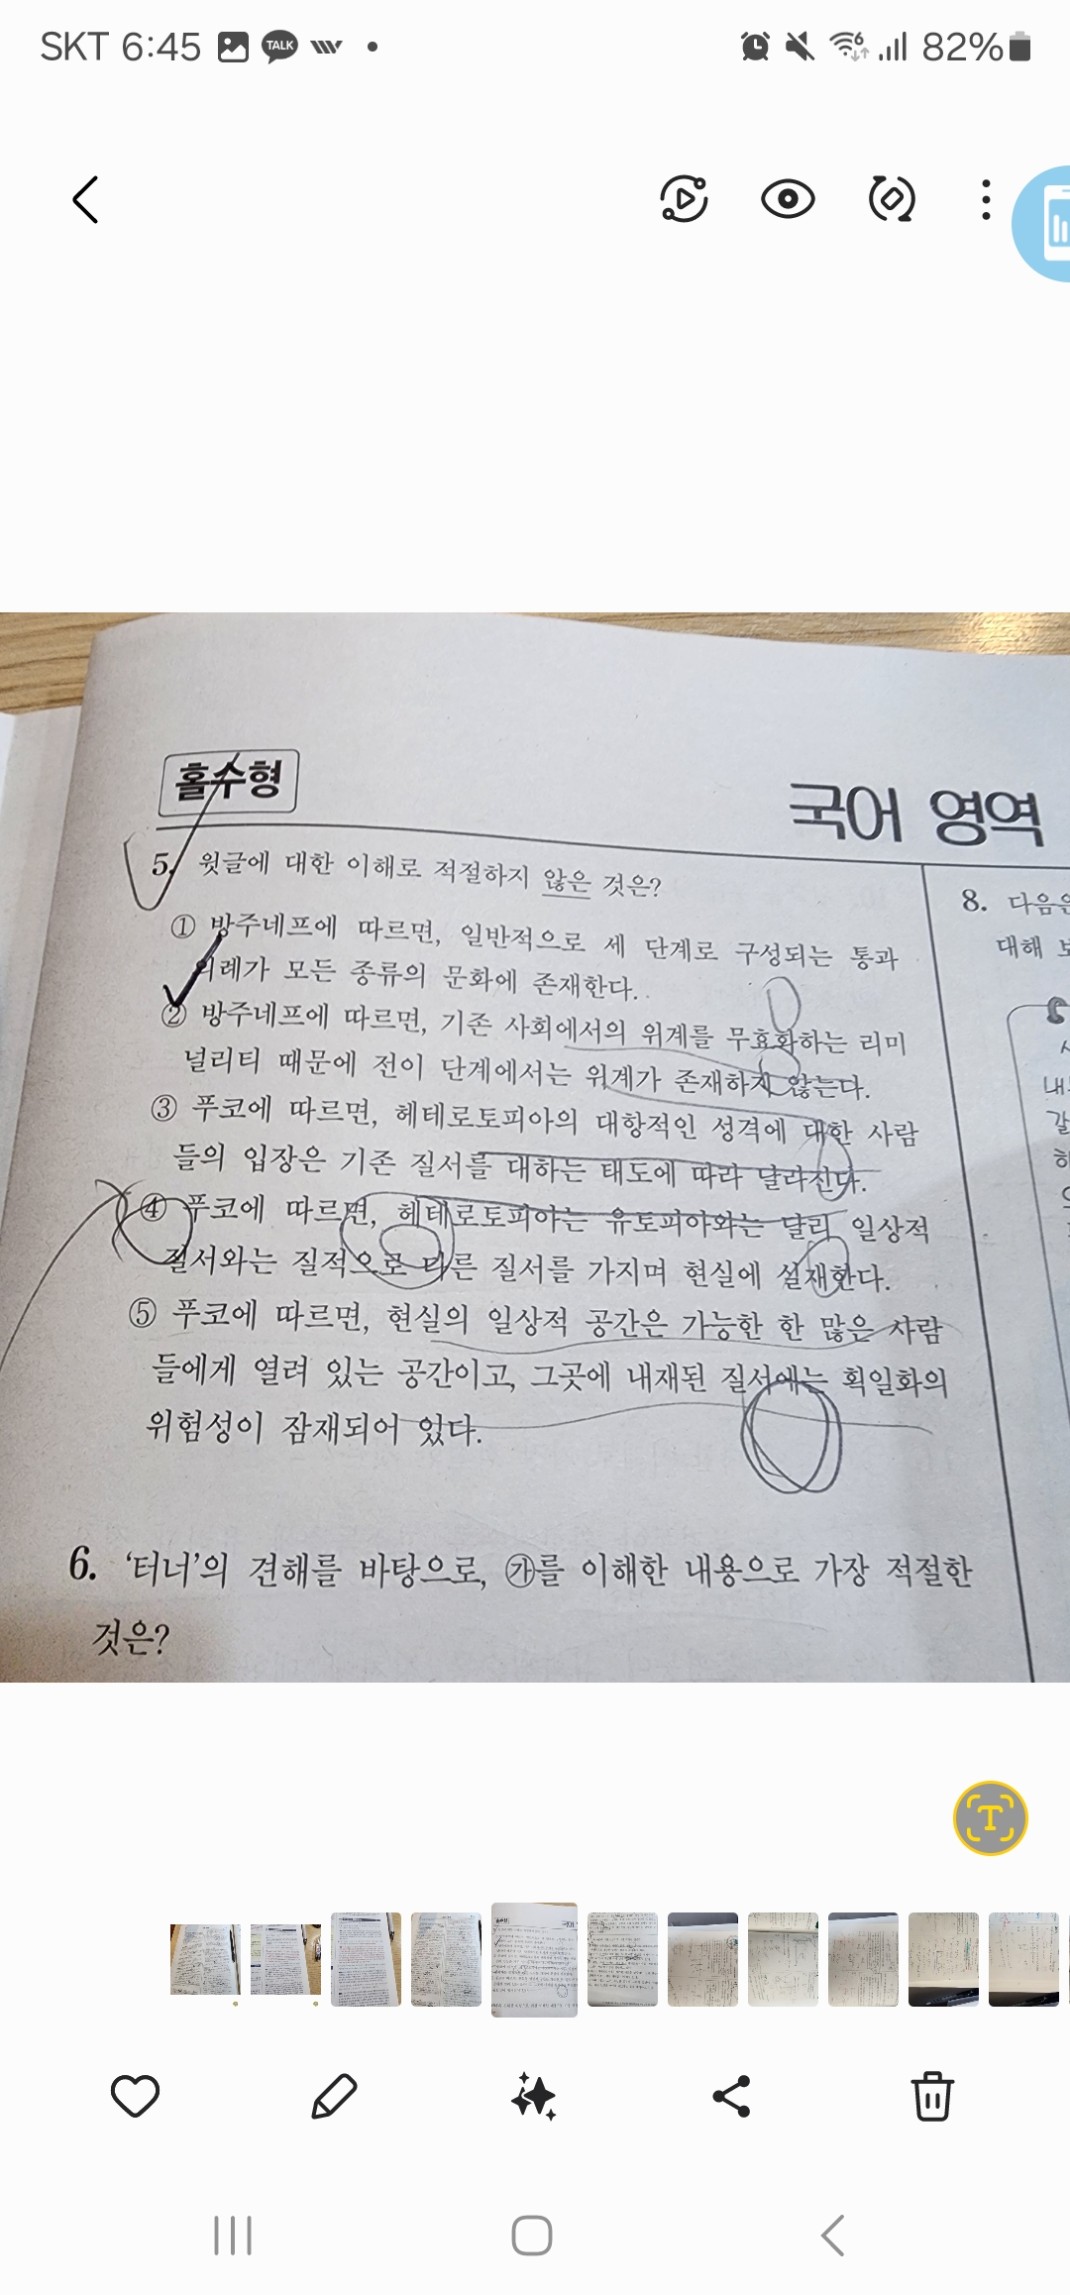 SKT 6:45 TALK 82%
홀수형
국어 영역
5. 윗글에 대한 이해로 적절하지 않은 것은?
① 방주네프에 따르면, 일반적으로 세 단계로 구성되는 통과
의례가 모든 종류의 문화에 존재한다.
② 방주네프에 따르면, 기존 사회에서의 위계를 무효화하는 리미
널리티 때문에 전이 단계에서는 위계가 존재하지 않는다.
③ 푸코에 따르면, 헤테로토피아의 대항적인 성격에 대한 사람
들의 입장은 기존 질서를 대하는 태도에 따라 달라진다.
④ 푸코에 따르면, 헤테로토피아는 유토피아와는 달리 일상적
질서와는 질적으로 다른 질서를 가지며 현실에 실재한다.
⑤ 푸코에 따르면, 현실의 일상적 공간은 가능한 한 많은 사람
들에게 열려 있는 공간이고, 그곳에 내재된 질서에는 획일화의
위험성이 잠재되어 있다.
6. ‘터너’의 견해를 바탕으로, ㉮를 이해한 내용으로 가장 적절한
것은?
8. 다음은
대해
T